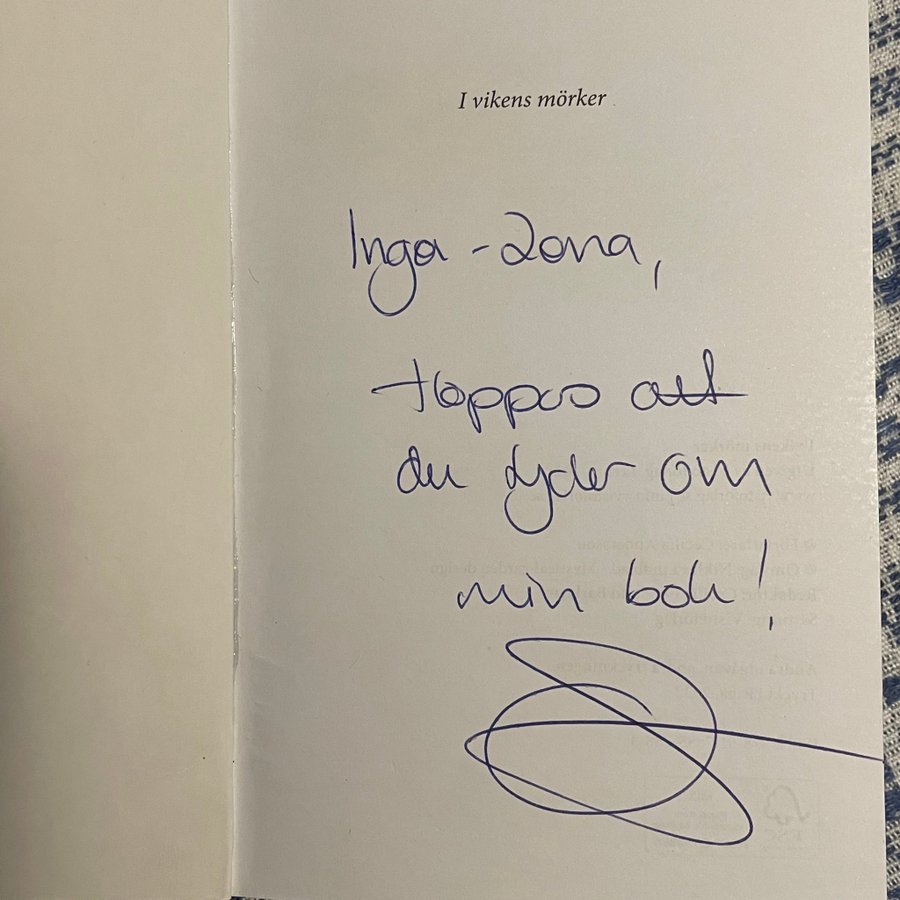 I vikens mörker
Inga-Lena,
Hoppas att
du tycker om
min bok!